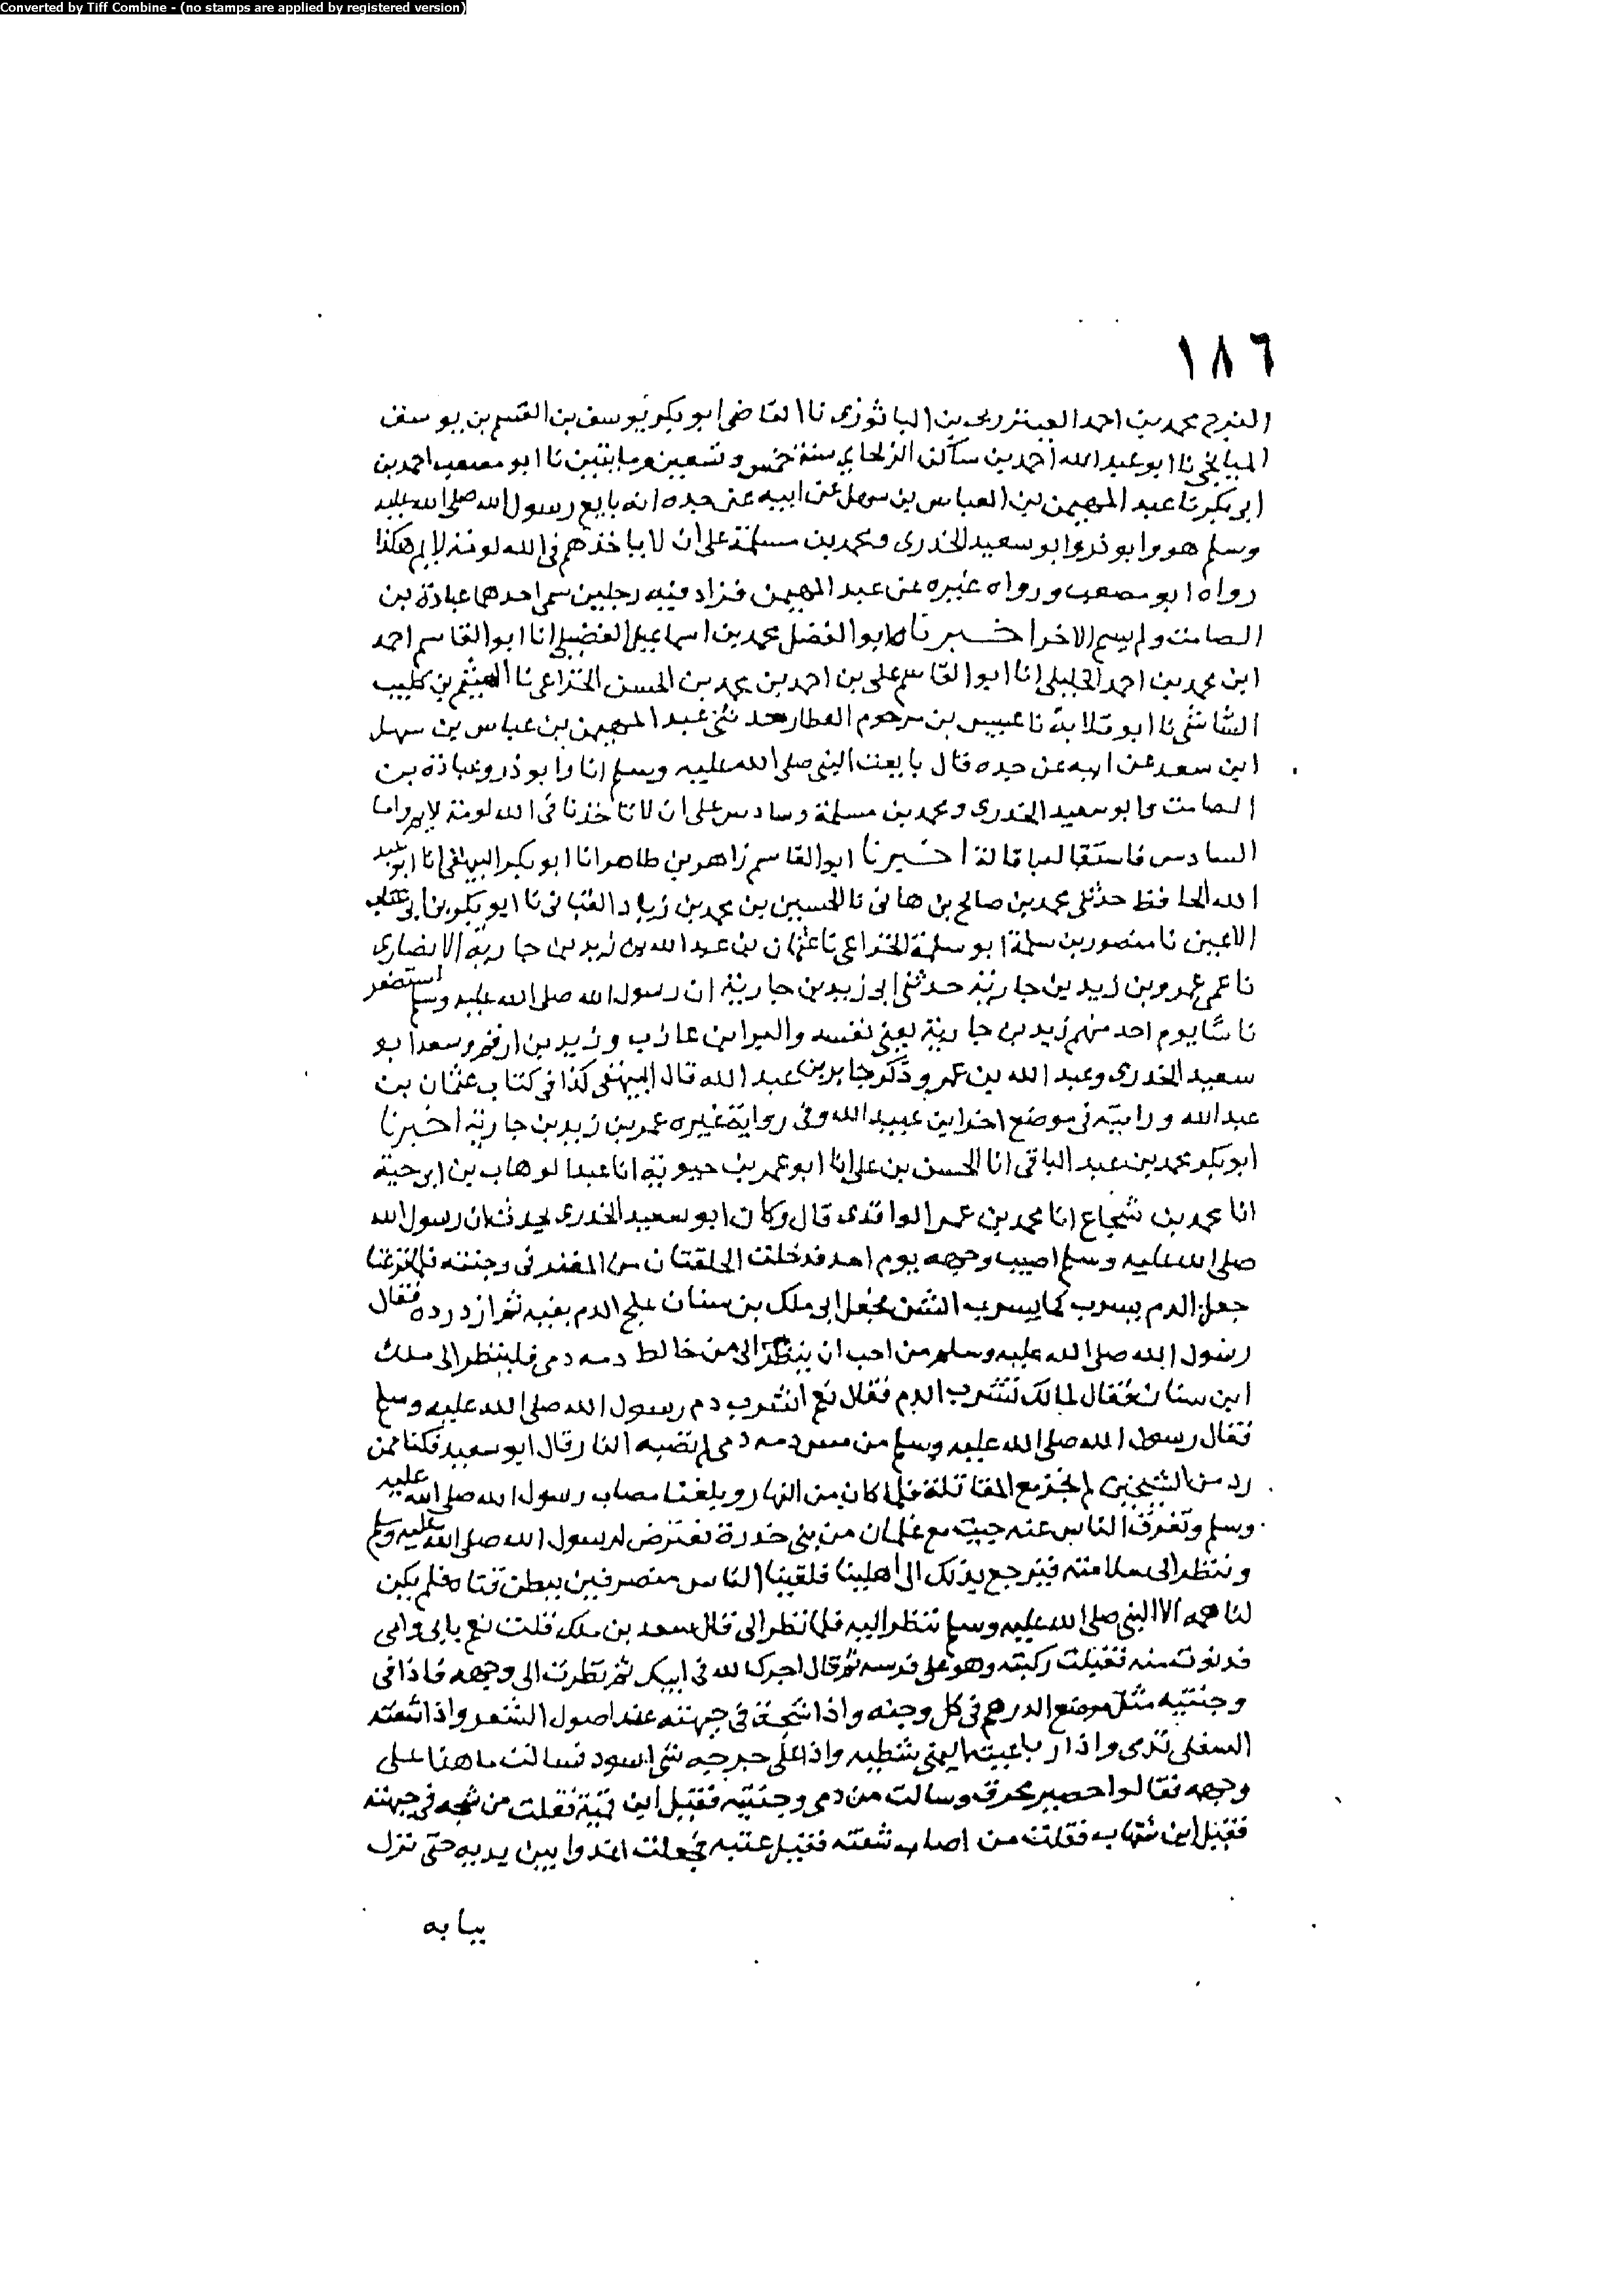 Converted by Tiff Combine - (no stamps are applied by registered version)
١٨٦
الفرج محمد بن احمد العينزربى بن الباثوزى نا القاضى ابو بكر يوسف بن القسم بن يوسف
الميانجى نا ابو عبد الله احمد بن ساكن الزنجاني سنة خمس وتسعين ومايتين نا ابو مصعب احمد بن
ابى بكر نا عبد المهيمن بن العباس بن سهل عن ابيه عن جده انه بايع رسول الله صلى الله عليه
وسلم هو وابو ذر وابو سعيد الخدرى ومحمد بن مسلمة على ان لا ياخذهم فى الله لومة لايم هكذا
رواه ابو مصعب ورواه غيره عن عبد المهيمن فزاد فيه رجلين سمى احدهما عبادة بن
الصامت ولم يسم الاخر اخبرناه ابو الفضل محمد بن اسماعيل الفضيلى انا ابو القاسم احمد
ابن محمد بن احمد الخليلى انا ابو القاسم على بن احمد بن محمد بن الحسن الخزاعى نا الهيثم بن كليب
الشاشى نا ابو قلابة نا عبيس بن مرحوم العطار حدثنى عبد المهيمن بن عباس بن سهل
ابن سعد عن ابيه عن جده قال بايعت النبى صلى الله عليه وسلم انا وابو ذر وعبادة بن
الصامت وابو سعيد الخدرى ومحمد بن مسلمة وسادس على ان لا تاخذنا فى الله لومة لايم واما
السادس فاستقاله فاقاله اخبرنا ابو القاسم زاهر بن طاهر انا ابو بكر البيهقى انا ابو عبد
الله الحافظ حدثنى محمد بن صالح بن هانى نا الحسين بن محمد بن زياد القبانى نا ابو بكر بن ابى عتاب
الاعين نا منصور بن سلمة ابو سلمة الخزاعى نا عثمان بن عبد الله بن زيد بن جارية الانصارى
نا عمى عمرو بن زيد بن جارية حدثنى ابى زيد بن جارية ان رسول الله صلى الله عليه وسلم استصغر
ناسا يوم احد منهم زيد بن جارية يعنى نفسه والبرا بن عازب وزيد بن ارقم وسعد ابو
سعيد الخدرى وعبد الله بن عمر وذكر جابر بن عبد الله قال البيهقى كذا فى كتاب عثمان بن
عبد الله ورايته فى موضع اخر ابن عبيد الله وفى رواية غيره عمر بن زيد بن جارية اخبرنا
ابو بكر محمد بن عبد الباقى انا الحسن بن على انا ابو عمر بن حيوية انا عبد الوهاب بن ابى حية
انا محمد بن شجاع انا محمد بن عمر الواقدى قال وكان ابو سعيد الخدرى يحدث ان رسول الله
صلى الله عليه وسلم اصيب وجهه يوم احد فدخلت الحلقتان من المغفر فى وجنته فلما نزعنا
جعل الدم يسرب كما يسرب الشن فجعل ابى ملك بن سنان يملج الدم بفيه ثم ازدرده فقال
رسول الله صلى الله عليه وسلم من احب ان ينظر الى من خالط دمه دمى فلينظر الى ملك
ابن سنان فقال لمالك تشرب الدم فقال نعم اشرب دم رسول الله صلى الله عليه وسلم
فقال رسول الله صلى الله عليه وسلم من مس دمه دمى لم تصبه النار قال ابو سعيد فكنا ممن
رد من الشيخين لم نجز مع المقاتلة فلما كان من النهار وبلغنا مصاب رسول الله صلى الله عليه
وسلم وتفرق الناس عنه جيت مع غلمان من بنى خدرة نعترض لرسول الله صلى الله عليه وسلم
وننظر الى سلامته فنرجع بذلك الى اهلينا فلقينا الناس منصرفين ببطن قناه فلم يكن
لنا همه الا النبى صلى الله عليه وسلم ننظر اليه فلما نظر الى قال سعد بن ملك قلت نعم بابى وامى
فدنوت منه فقبلت ركبته وهو على فرسه ثم قال اجرك الله فى ابيك ثم نظرت الى وجهه فاذا فى
وجنتيه مثل موضع الدرهم فى كل وجنه واذا شجة فى جبهته عند اصول الشعر واذا شفته
السفلى تدمى واذا رباعيته اليمنى شظيه واذا على جرحه شى اسود فسالت ما هذا على
وجهه فقالوا حصير محرق وسالت من دمى وجنتيه فقيل ابن قمية فقلت من شجه فى جبهته
فقيل ابن شهاب فقلت من اصاب شفته فقيل عتبه فجعلت اعدوا بين يديه حتى نزل
ببابه